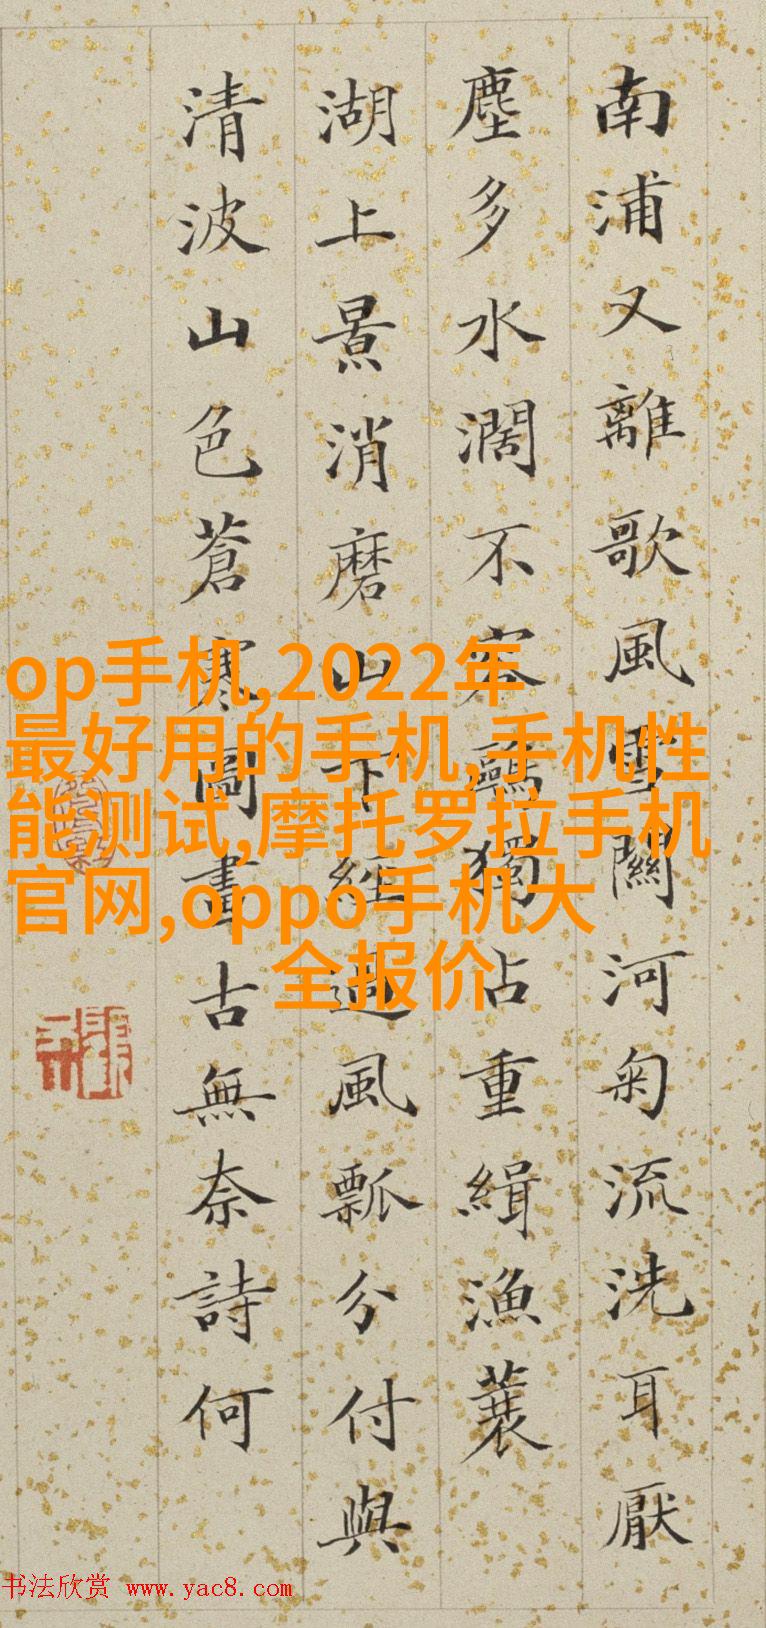 南浦又離歌風雪關河匊流洗耳厭
塵多水濶不容鷗獨占重緝漁蓑
湖上景消磨山下經過風瓢分付與
清波山色蒼寒圖畫古無奈詩何
op手机,2022年
最好用的手机,手机性
能测试,摩托罗拉手机
官网,oppo手机大
全报价
书法欣赏 www.yac8.com